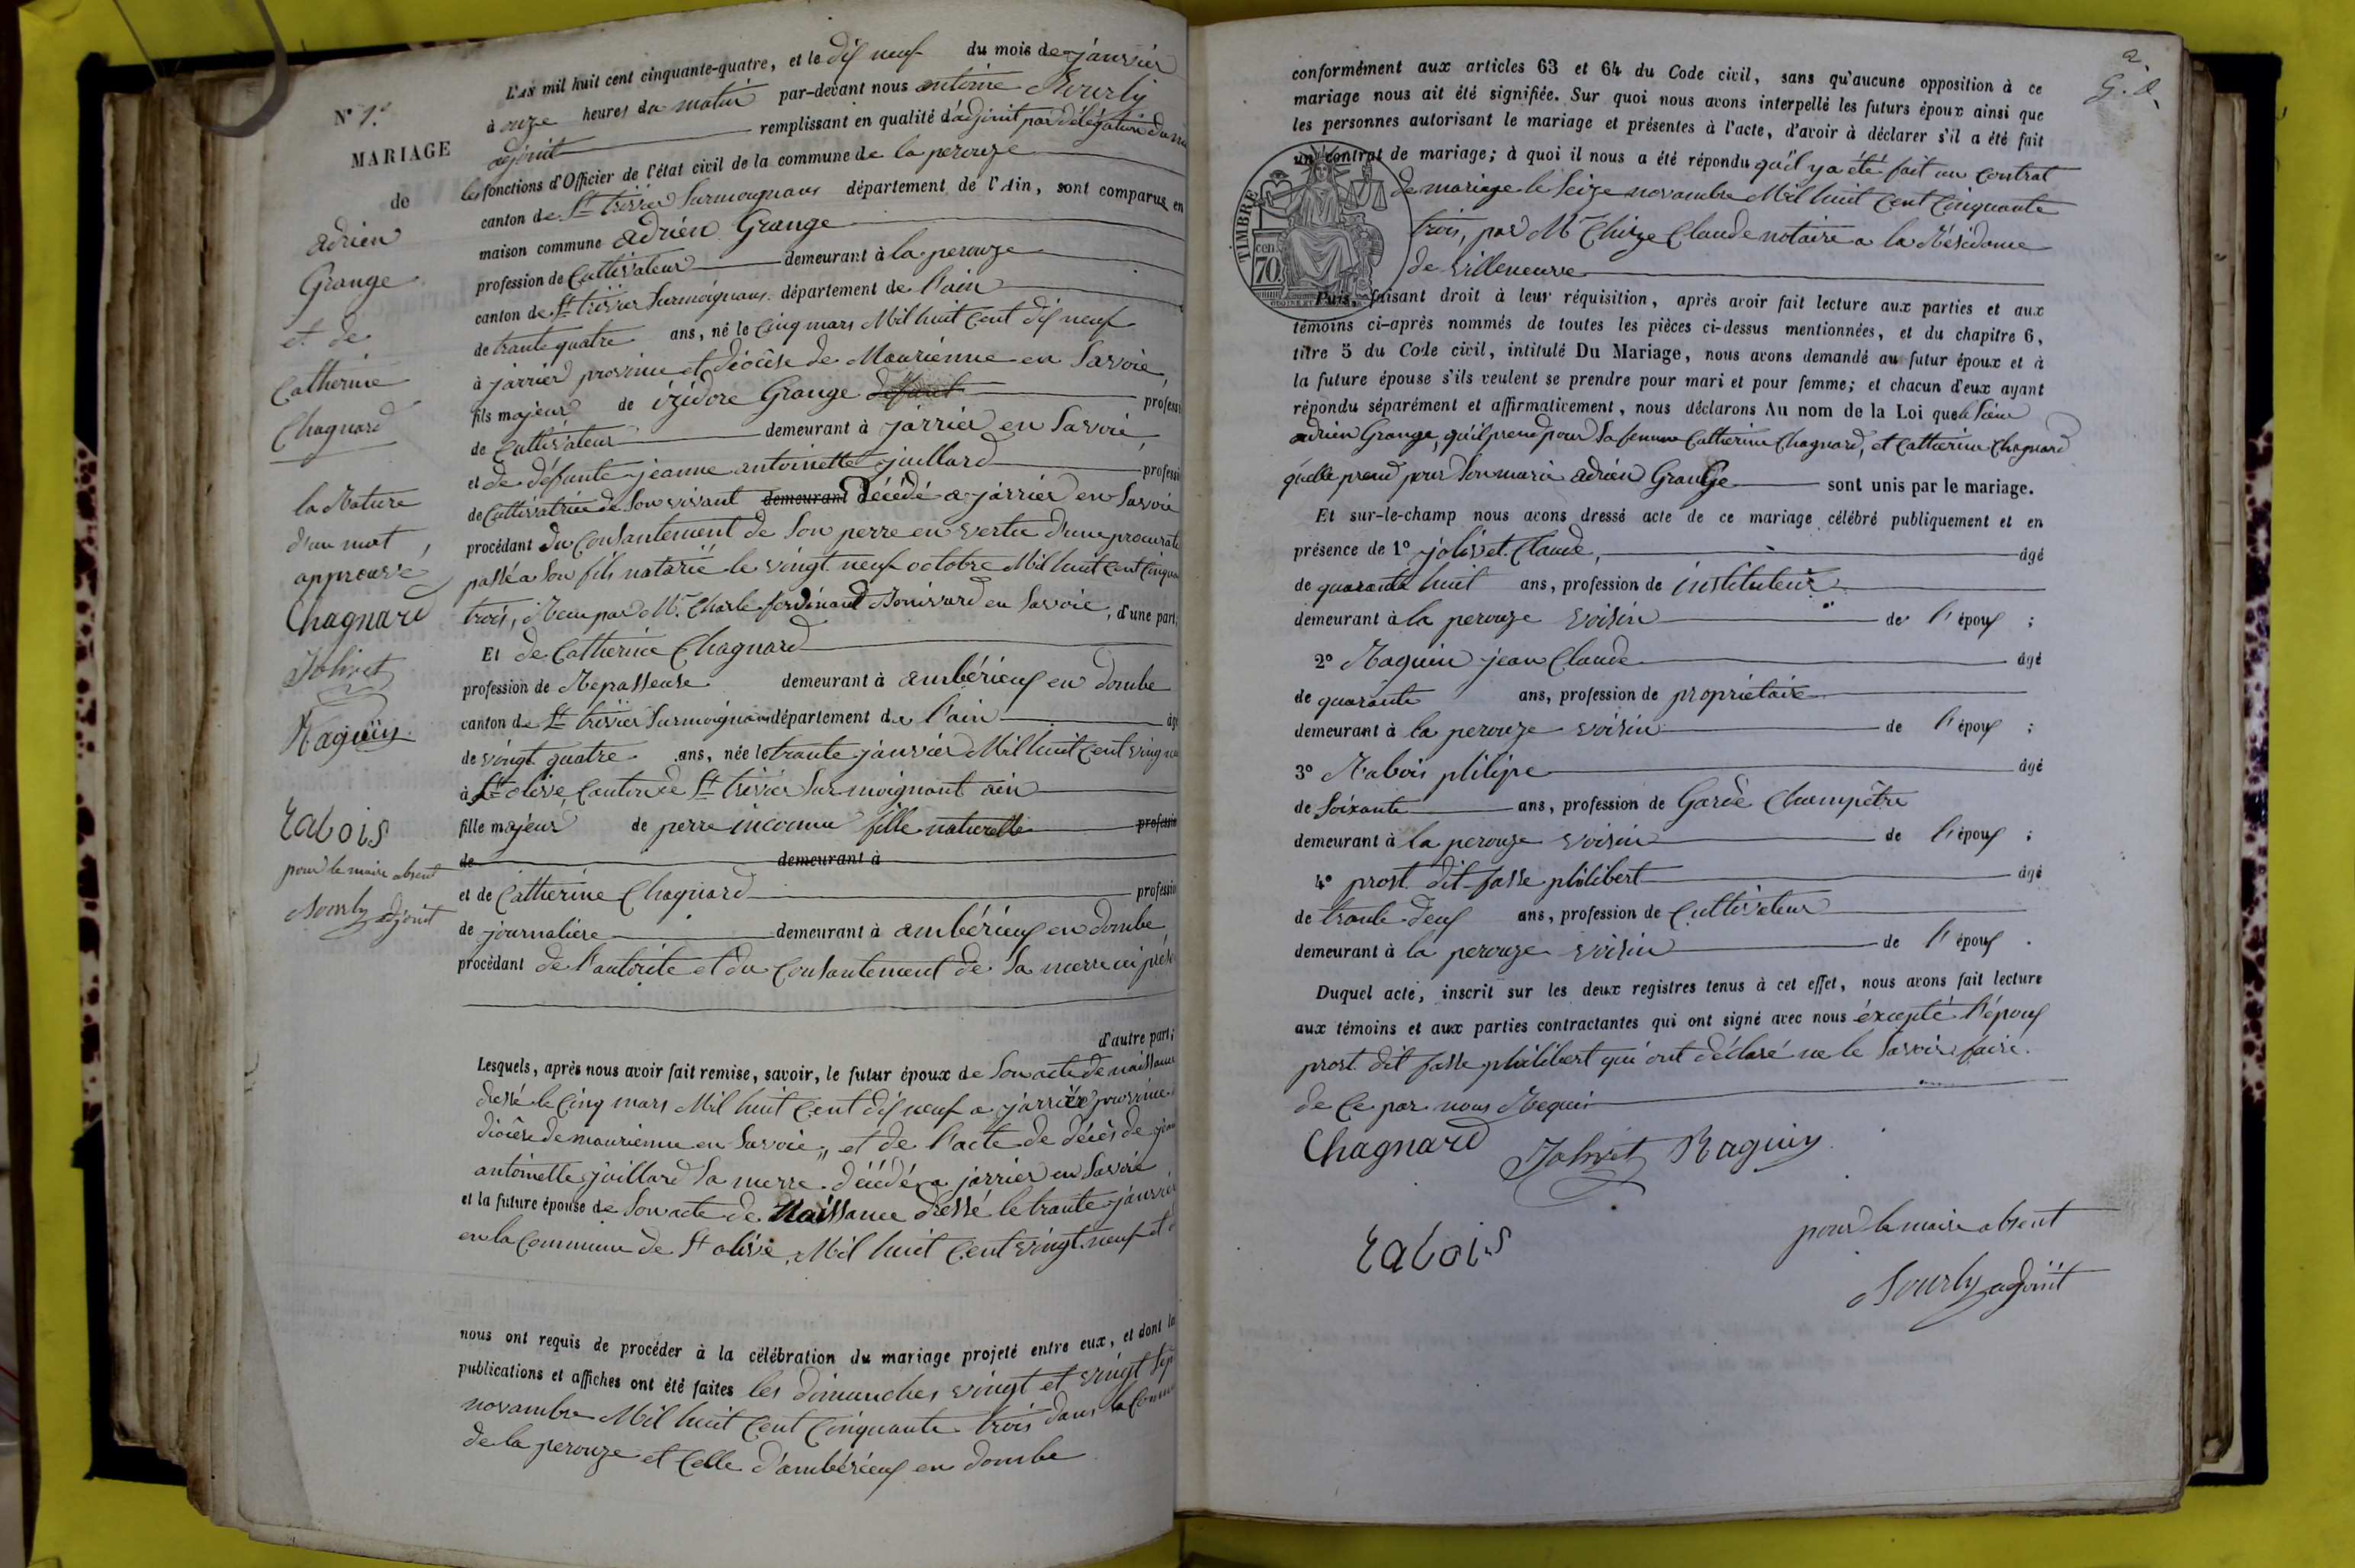 N° 1.er
MARIAGE
de
adrien
Grange
et de
Catherine
Chagnard
la Rature
d'un mot
approuvé
Chagnard
Jolivet
Raguin
Rabois
pour le maire absent
adjoint
L'AN mil huit cent cinquante-quatre, et le dix neuf du mois de janvier
à onze heures du matin par-devant nous antoine
adjoint remplissant en qualité d'adjoint par délégation du
les fonctions d'Officier de l'état civil de la commune de la perouze
canton de St trivier Surmoignans département de l'Ain, sont comparus en
maison commune adrien Grange
profession de Cultivateur demeurant à la perouze
canton de St trivier Surmoignans département de l'ain
de trante quatre ans, né le Cinq mars Mil huit Cent dix neuf
à jarrier province et diocèse de Maurienne en Savoie,
fils majeur de izidore Grange défunt professi
de Cultivateur demeurant à jarrier en Savoie,
et de défunte jeanne antoinette juillard professi
de Cultivatrice de Son vivant demeurant décédé a jarrier en Savoie
procédant du Consantement de Son perre en vertu d'une procurati
passé a Son fils notarié le vingt neuf octobre Mil huit Cent Cinqua
trois, Recu par Me. Charle ferdinand en Savoie, d'une part;
Et de Catherine Chagnard
profession de Repasseuse demeurant à ambérieux en dombe
canton de St trivier Surmoignans département de l'ain âgé
de vingt quatre ans, née le trante janvier Mil huit Cent vingt
à St olive Canton de St trivier Sur moignant ain
fille majeur de perre inconnu fille naturelle professio
de demeurant à
et de Catherine Chagnard professio
de journalière demeurant à ambérieux en dombe
procédant de l'autorite et du Consantement de Sa merre ici
d'autre part;
Lesquels, après nous avoir fait remise, savoir, le futur époux de Son acte de naissance
dressé le Cinq mars Mil huit Cent dix neuf a jarrier province
diocèse de maurienne en Savoie, et de l'acte de décès de
antoinette juillard Sa merre décédé a jarrier en Savoie
et la future épouse de Son acte de Naissance dressé le trante janvier
en la Commune de St olive, Mil huit Cent vingt neuf et
nous ont requis de procéder à la célébration du mariage projeté entre eux, et dont la
publications et affiches ont été faites les dimanches vingt et vingt Sep
novambre Mil huit Cent Cinquante trois dans la Comm
de la perouze et Celle d'ambérieux en dombe
2.
conformément aux articles 63 et 64 du Code civil, sans qu'aucune opposition à ce
mariage nous ait été signifiée. Sur quoi nous avons interpellé les futurs époux ainsi que
les personnes autorisant le mariage et présentes à l'acte, d'avoir à déclarer s'il a été fait
un contrat de mariage; à quoi il nous a été répondu qu'il y a été fait un Contrat
de mariage le Seize novambre Mil huit Cent Cinquante
trois, par Me Claude notaire a la Résidance
de villeneuve
TIMBRE
cen.
70
Puis, faisant droit à leur réquisition, après avoir fait lecture aux parties et aux
témoins ci-après nommés de toutes les pièces ci-dessus mentionnées, et du chapitre 6,
titre 5 du Code civil, intitulé Du Mariage, nous avons demandé au futur époux et à
la future épouse s'ils veulent se prendre pour mari et pour femme; et chacun d'eux ayant
répondu séparément et affirmativement, nous déclarons Au nom de la Loi que le Sieur
adrien Grange, qu'il prend pour Sa femme Catherine Chagnard, et Catherine Chagnard
qu'elle prend pour Son marie adrien Grange sont unis par le mariage.
Et sur-le-champ nous avons dressé acte de ce mariage célébré publiquement et en
présence de 1° jolivet Claude, âgé
de quarante huit ans, profession de instituteur
demeurant à la perouze voisin de l'époux ;
2° Raguin jean Claude âgé
de quarante ans, profession de propriétaire
demeurant à la perouze voisin de l'époux ;
3° Rabois philipe âgé
de Soixante ans, profession de Garde Champêtre
demeurant à la perouze voisin de l'époux ;
4° prost dit fasse philibert âgé
de trante deux ans, profession de Cultivateur
demeurant à la perouze voisin de l'époux .
Duquel acte, inscrit sur les deux registres tenus à cet effet, nous avons fait lecture
aux témoins et aux parties contractantes qui ont signé avec nous éxcepté l'époux
prost dit fasse philibert qui ont déclaré ne le Savoir faire.
de Ce par nous Requis
Chagnard Jolivet Raguin
Rabois
pour le maire absent
adjoint